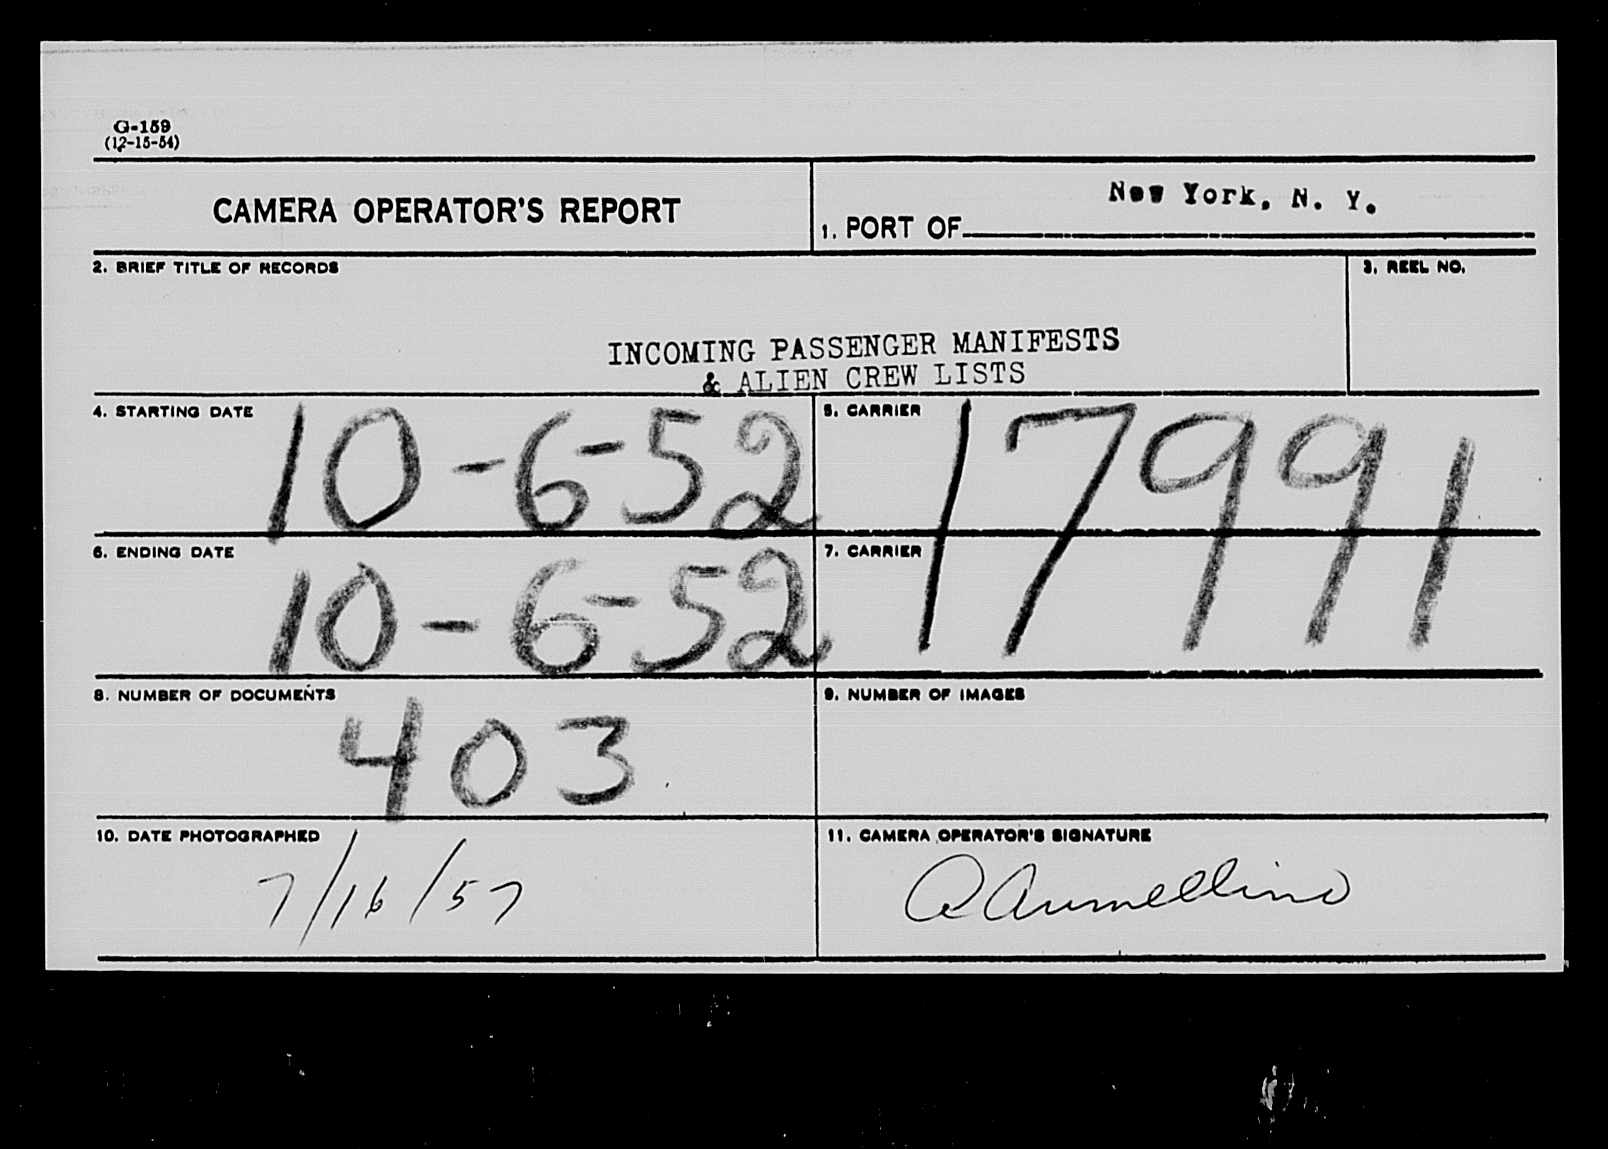 G-159
(12-15-54)
CAMERA OPERATOR'S REPORT
1. PORT OF New York, N. Y.
2. BRIEF TITLE OF RECORDS
3. REEL NO.
INCOMING PASSENGER MANIFESTS
& ALIEN CREW LISTS
4. STARTING DATE 10-6-52
5. CARRIER 17991
6. ENDING DATE 10-6-52
7. CARRIER
8. NUMBER OF DOCUMENTS 403
9. NUMBER OF IMAGES
10. DATE PHOTOGRAPHED
7/16/57
11. CAMERA OPERATOR'S SIGNATURE